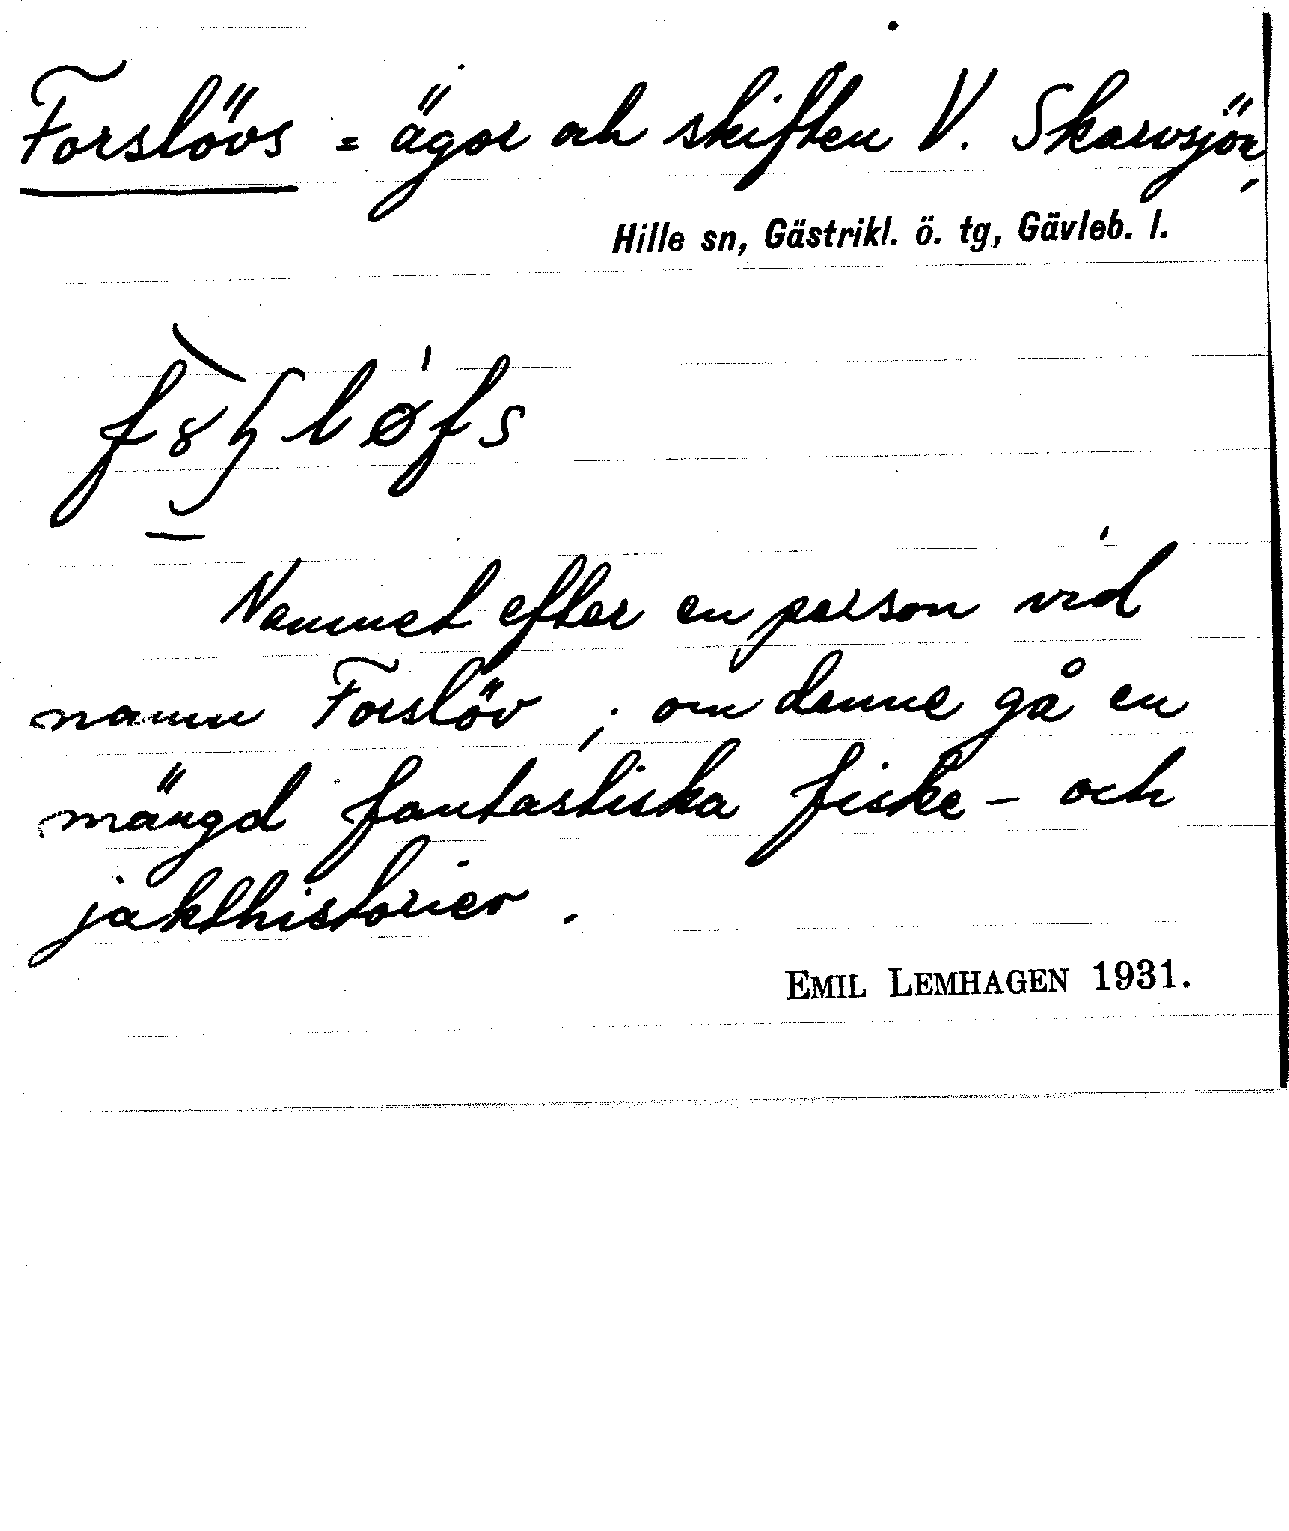 Forslövs = ägor och skiften V. Skarvsjön,
Hille sn, Gästrikl. ö. tg, Gävleb. l.
Namnet efter en person vid
namn Forslöv ; om denne gå en
mängd fantastiska fiske- och
jakthistorier .
EMIL LEMHAGEN 1931.